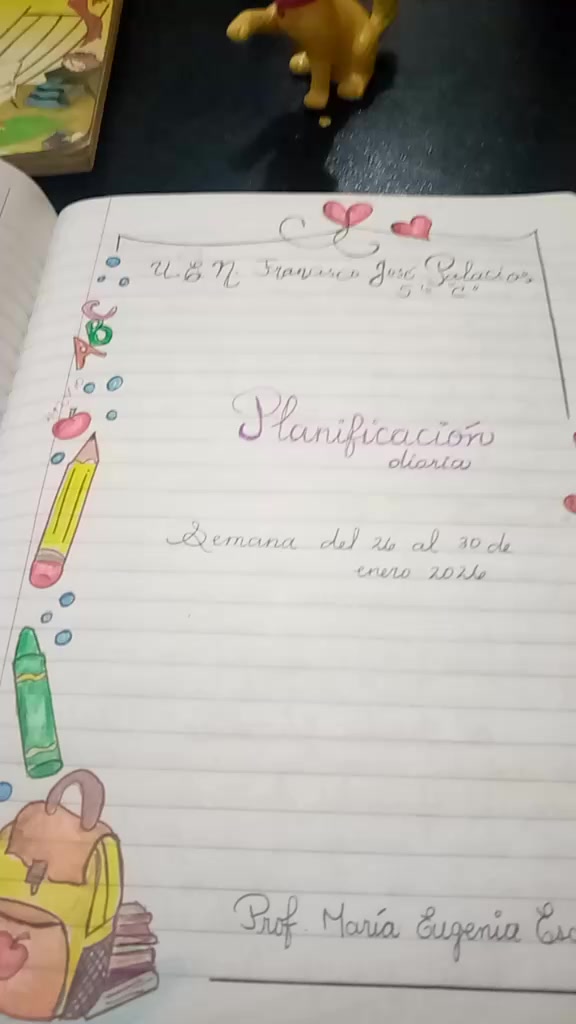 U.E.N Francisco José Palacios
5to "C"
A B C
Planificación
diaria
Semana del 26 al 30 de
enero 2026
Prof. María Eugenia